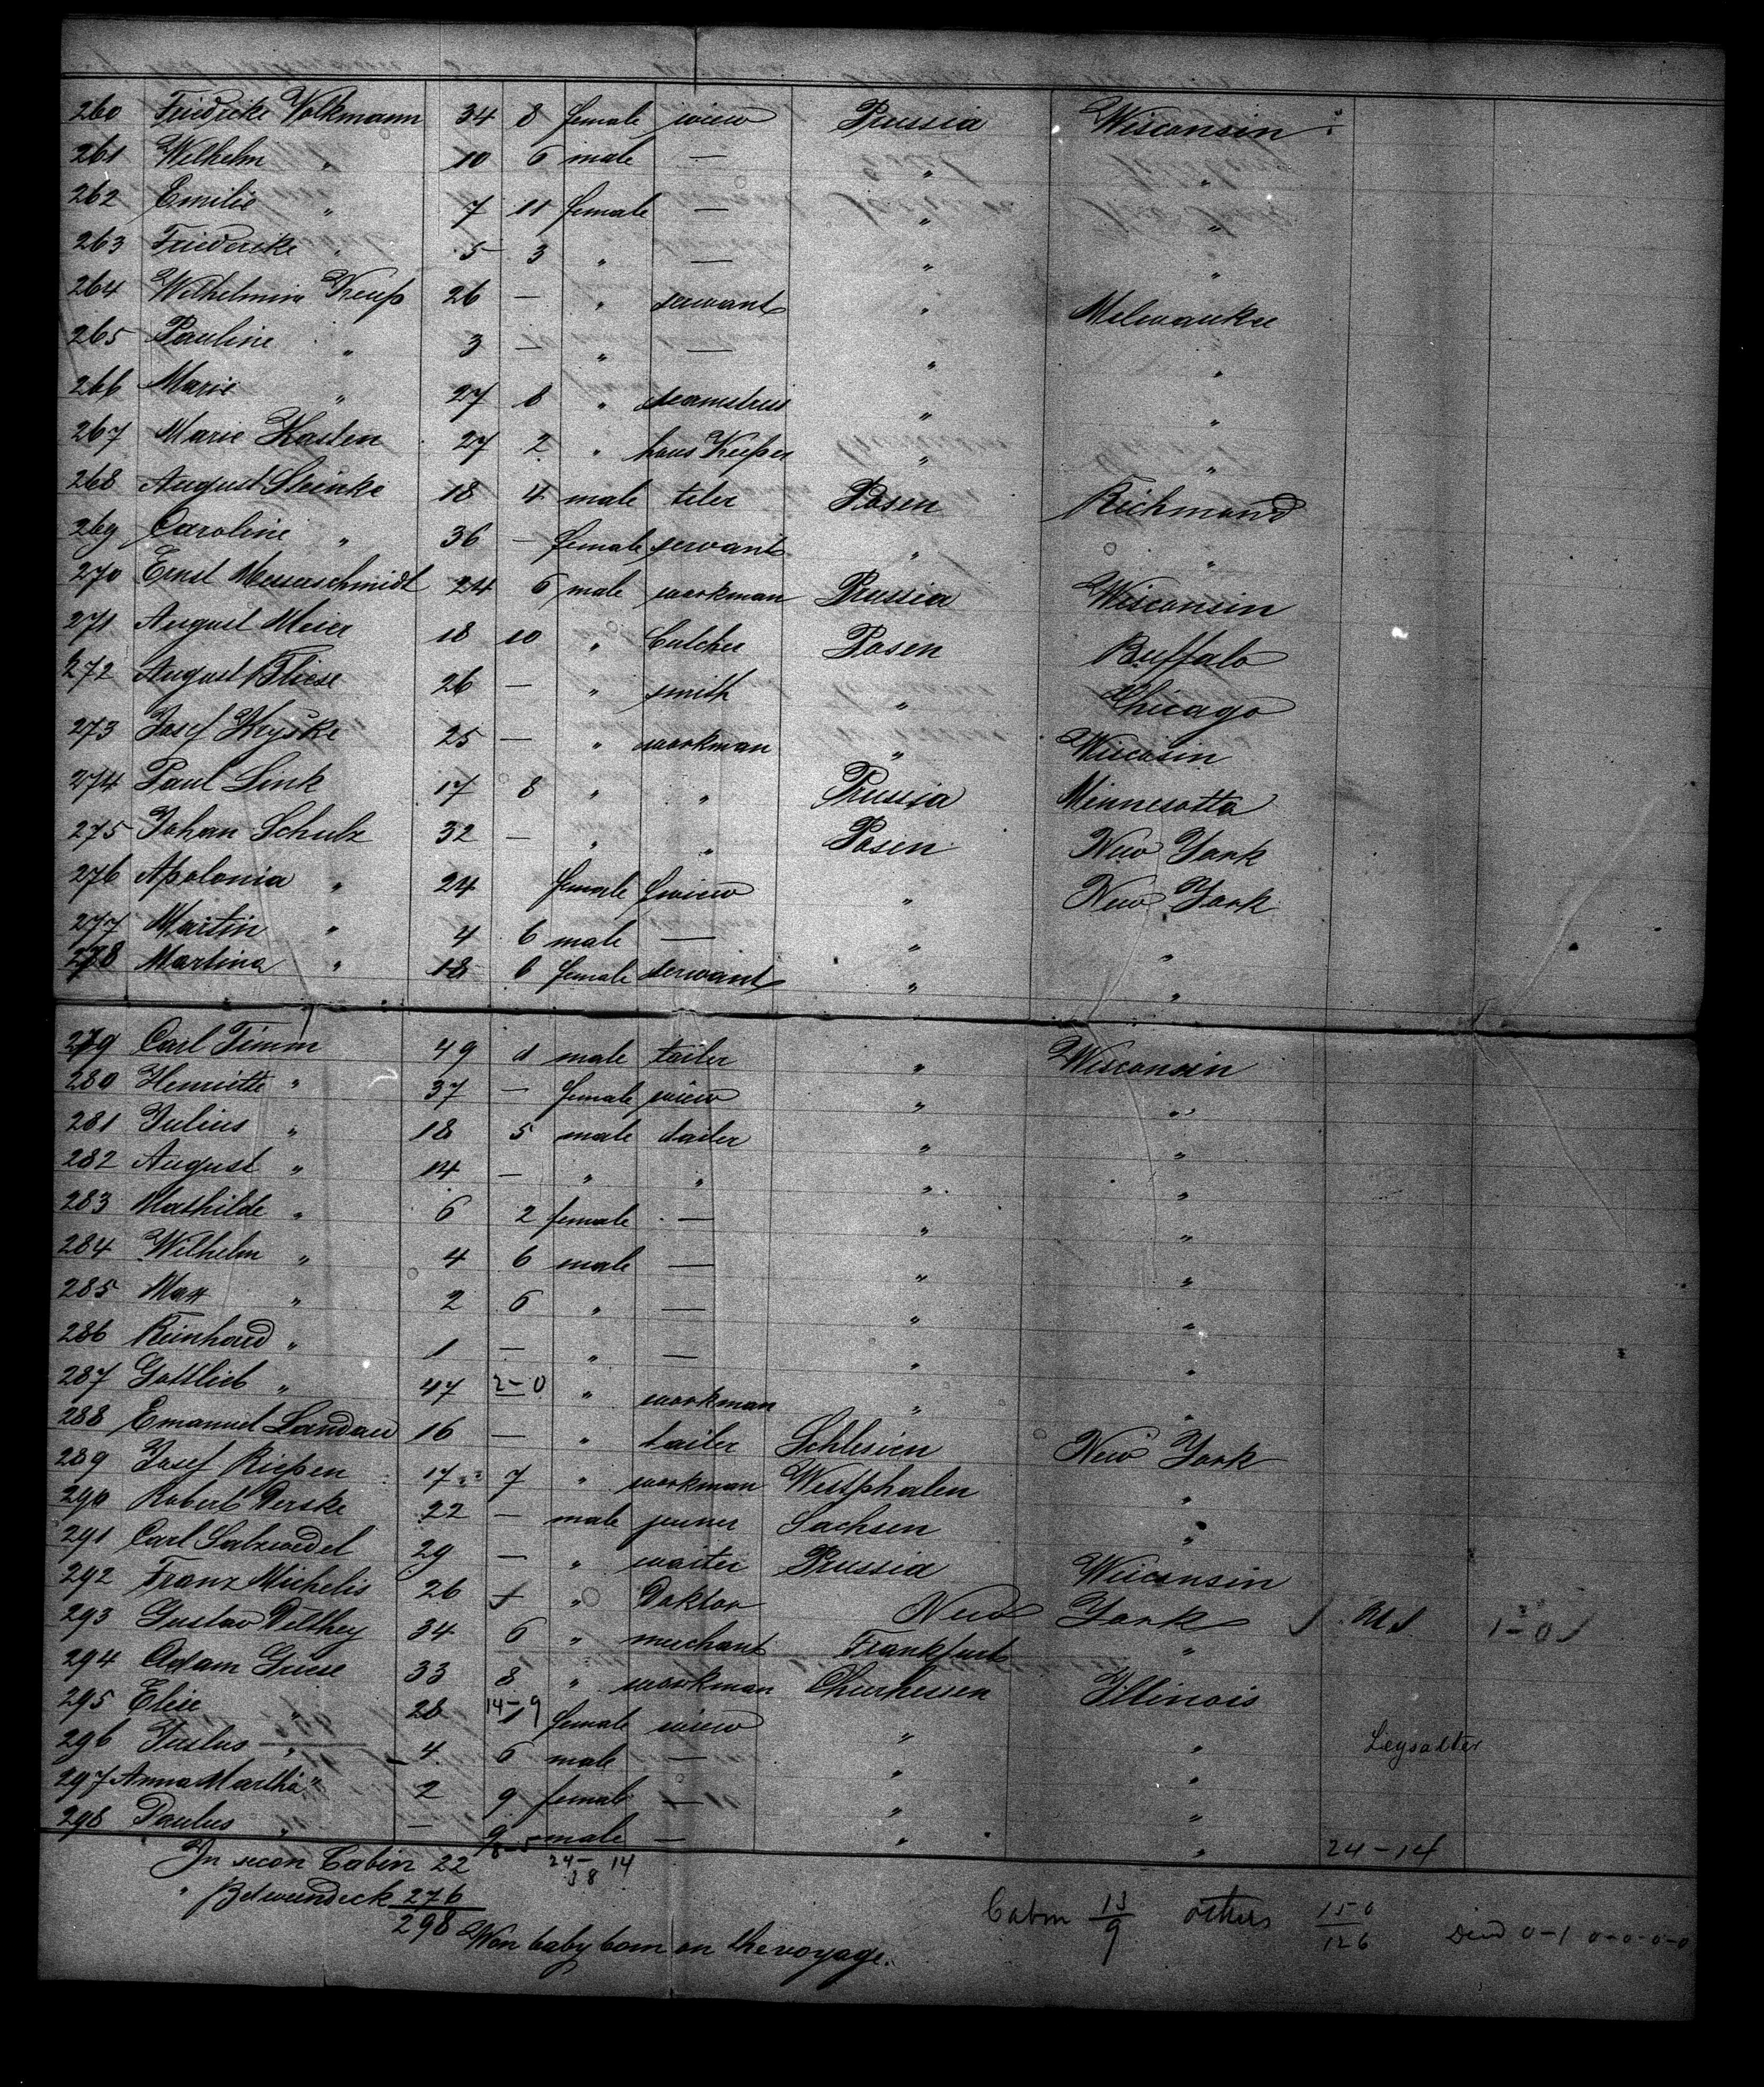 260 Friedricke Volkmann 34 8 female wiew Prussia Wisconsin
261 Wilhelm " 10 6 male — " "
262 Emilie " 7 11 female — " "
263 Friedericke " 5 3 " — " "
264 Wilhelmine Kreup 26 — " servant " Melwaukee
265 Pauline " 3 — " — " "
266 Marie " 27 8 " seamstress " "
267 Marie Kasten 27 2 " haus Keeper " "
268 August Steinke 18 4 male tiler Posen Richmond
269 Caroline " 36 — female servant " "
270 Ernst Messerschmidt 24 6 male workman Prussia Wisconsin
271 August Meier 18 10 " butcher Posen Buffalo
272 August Fliese 26 — " smith " Chicago
273 Josef Kryske 25 — " workman " Wiscosin
274 Paul Link 17 8 " " Prussia Minnesotta
275 Johan Schulz 32 — " " Posen New York
276 Apolonia " 24 female wiew " New York
277 Martin " 4 6 male — " "
278 Martina " 18 6 female servant " "
279 Carl Timm 49 male tailer " Wisconsin
280 Henriette " 37 — female wiew " "
281 Julius " 18 5 male tailer " "
282 August " 14 — " " " "
283 Mathilde " 6 2 female — " "
284 Wilhelm " 4 6 male — " "
285 Max " 2 6 " — " "
286 Reinhard " 1 — " — " "
287 Gottlieb " 47 2-0 " workman " "
288 Emanuel Landau 16 — " tailer Schlesien New York
289 Josef Riepen 17 7 " workman Westphalen "
290 Robert Derske 22 — male joiner Sachsen "
291 Carl Salzwedel 29 — " waiter Prussia Wisconsin
292 Franz Michelis 26 " Doktor New York 1-0
293 Gustav Dilthey 34 6 " merchant Frankfurt "
294 Adam Griese 33 8 " workman Churhessen Illinois
295 Elise " 28 14-9 female wiew " "
296 Justus " 4 6 male — " "
297 Anna Martha " 2 9 female — " "
298 Paulus " — 9 male — " " 24-14
In secon Cabin 22 24-14
38
" Betweendeck 276
298
Won baby born on the voyage.
Cabin 13/9 others 150/126 Died 0-1 0-0-0-0